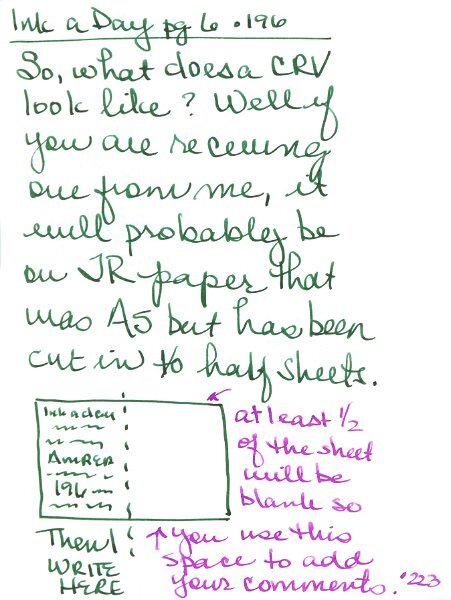 Ink a Day pg 6 •196
So, what does a CRV
look like? Well if
you are receiving
one from me, it
will probably be
on TR paper that
was A5 but has been
cut in to half sheets.
Ink a day
AmRep
196
at least 1/2
of the sheet
will be
blank so
you use this
space to add
your comments. •223
Then I
WRITE
HERE